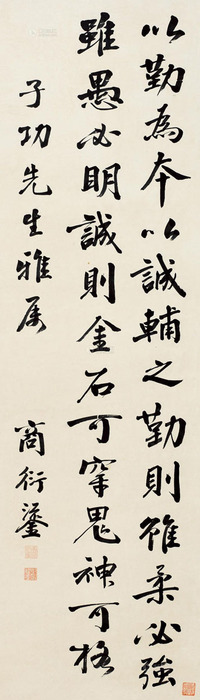 以勤為本以誠輔之勤則雖柔必強
雖愚必明誠則金石可穿鬼神可格
子功先生雅属
商衍鎏